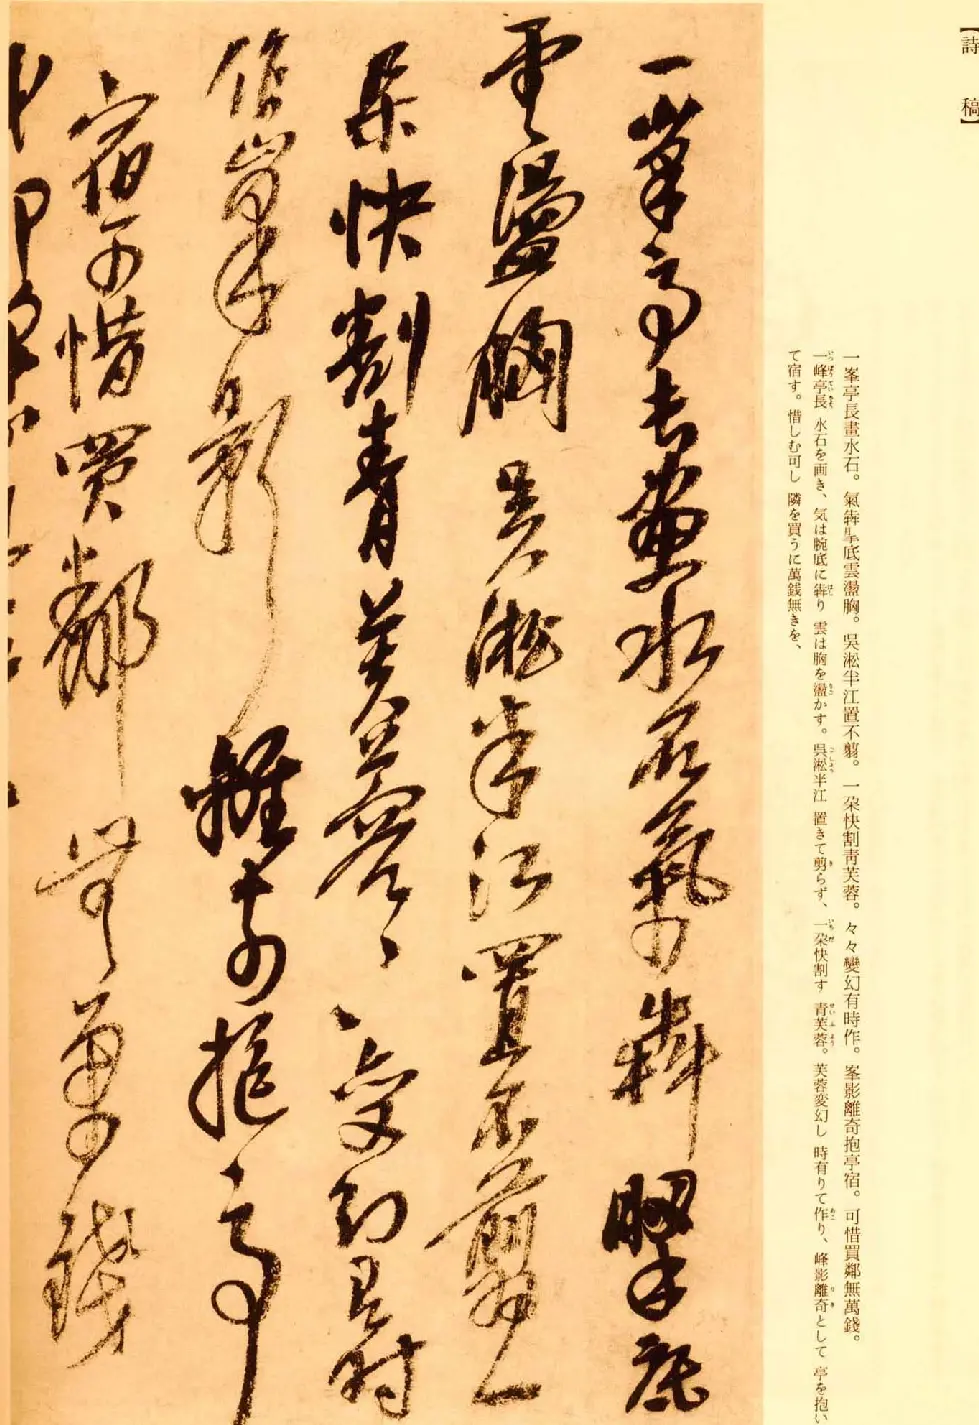 【詩稿】
一峯亭長畫水石。氣犇掔底雲盪胸。吳淞半江置不翦。一朶快割靑芙蓉。々々變幻有時作。峯影離奇抱亭宿。可惜買鄰無萬錢。
一峰亭長 水石を画き、気は腕底に犇り 雲は胸を盪かす。呉淞半江 置きて剪らず、一朶快割す 青芙蓉。芙蓉変幻し 時有りて作り、峰影離奇として 亭を抱い
て宿す。惜しむ可し 隣を買うに萬銭無きを、
一峯亭長畫水石氣犇掔底
雲盪胸吳淞半江置不翦一
朶快割青芙蓉々々變幻有時
作峯影離奇抱亭
宿可惜買鄰無萬錢